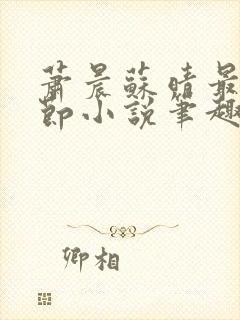 蕭晨蘇晴最
節小說筆趣
卿相